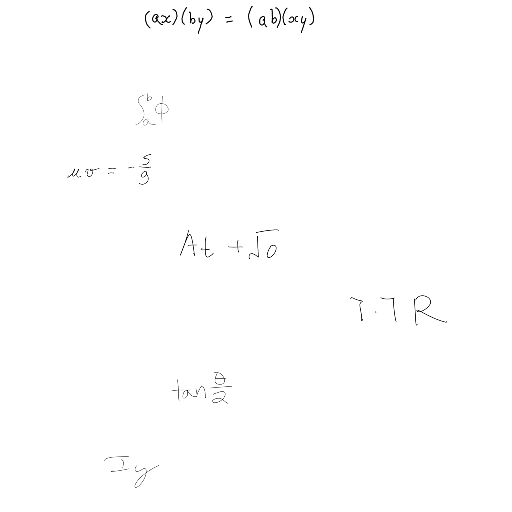 (ax)(by) = (ab)(xy)
∫_a^b ϕ
μv = -\frac{5}{9}
At + √0
7.7 R
tan \frac{θ}{2}
Iy